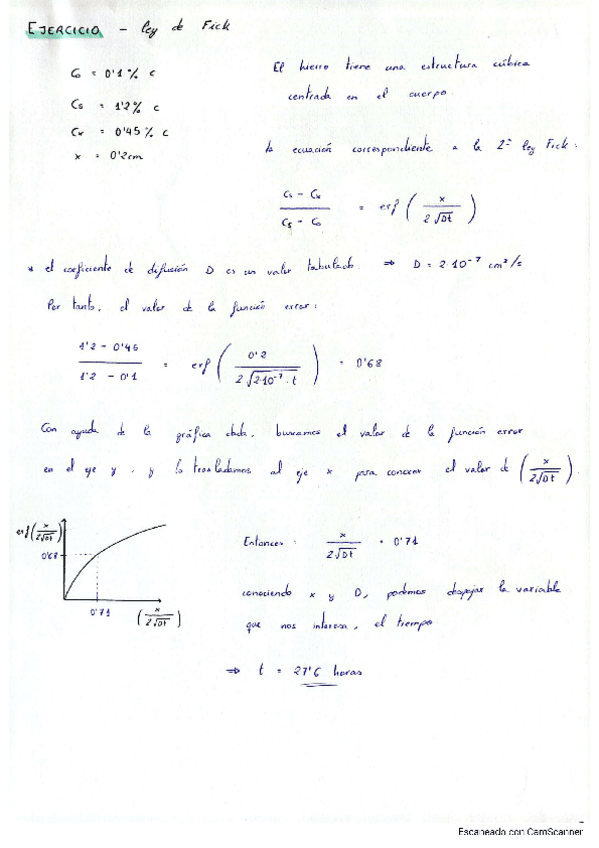 EJERCICIO - ley de Fick
C₀ = 0'1 % C
Cs = 1'2 % C
Cx = 0'45 % C
x = 0'2 cm
El hierro tiene una estructura cúbica
centrada en el cuerpo.
la ecuación correspondiente a la 2ª ley Fick:
(Cs - Cx) / (Cs - C₀) = erf ( x / 2√Dt )
* el coeficiente de difusión D es un valor tabulado ⇒ D = 2·10⁻⁷ cm²/s
Por tanto, el valor de la función error:
(1'2 - 0'45) / (1'2 - 0'1) = erf ( 0'2 / 2√2·10⁻⁷·t ) = 0'68
Con ayuda de la gráfica dada, buscamos el valor de la función error
en el eje y, y lo trasladamos al eje x para conocer el valor de ( x / 2√Dt ).
erf( x / 2√Dt )
0'68
0'71
( x / 2√Dt )
Entonces: x / 2√Dt = 0'71
conociendo x y D, podemos despejar la variable
que nos interesa, el tiempo
⇒ t = 27'6 horas
Escaneado con CamScanner